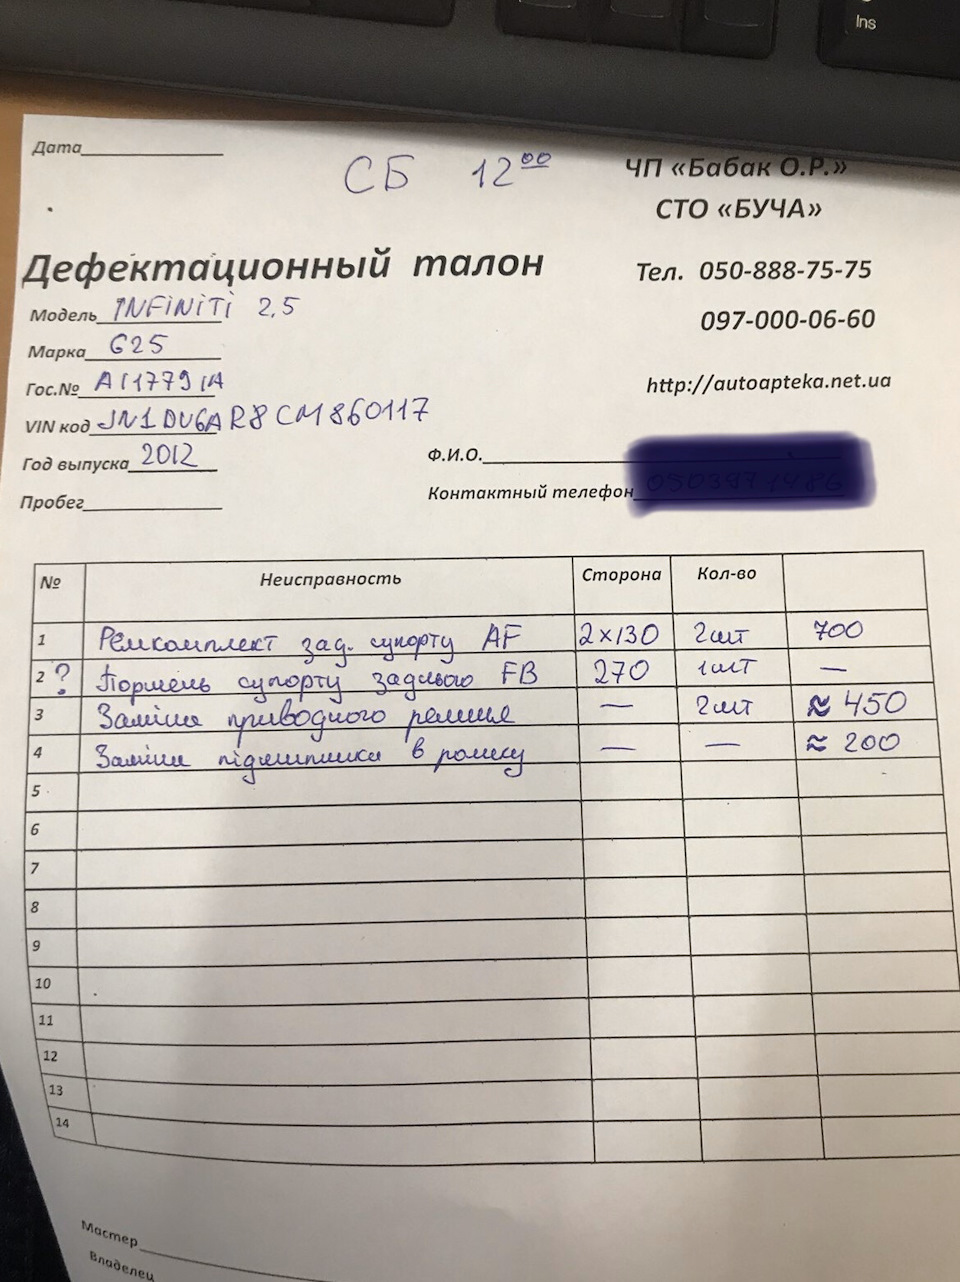 Ins
Дата
СБ 12⁰⁰
ЧП «Бабак О.Р.»
СТО «БУЧА»
Дефектационный талон
Тел. 050-888-75-75
097-000-06-60
Модель INFINITI 2,5
Марка G25
http://autoapteka.net.ua
Гос.№ AI1779IA
VIN код JN1DV6AR8CM860117
Год выпуска 2012
Ф.И.О.
Пробег
Контактный телефон
№ Неисправность Сторона Кол-во
1 Ремкомплект зад. супорту AF 2х130 2шт 700
2 ? Поршень супорту заднього FB 270 1шт —
3 Заміна приводного ременя — 2шт ≈ 450
4 Заміна підшипника в ролику — — ≈ 200
5
6
7
8
9
10
11
12
13
14
Мастер
Владелец